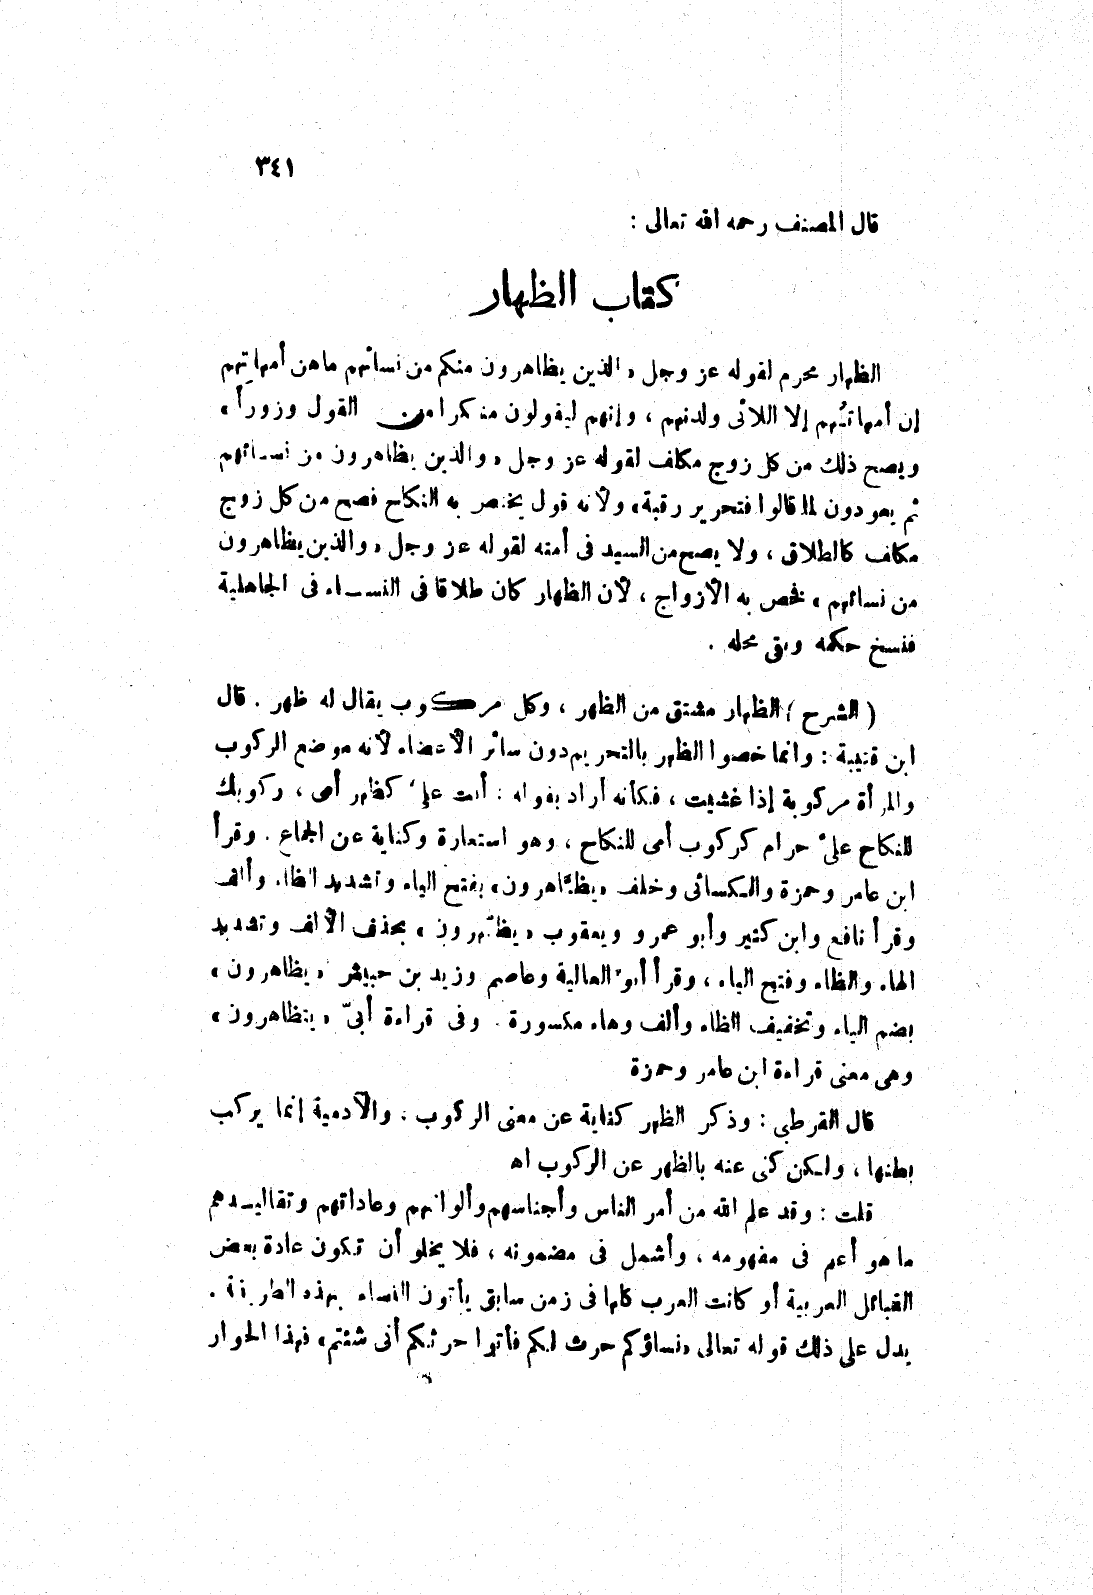 ٣٤١
قال المصنف رحمه الله تعالى :
كتاب الظهار
الظهار محرم لقوله عز وجل « الذين يظاهرون منكم من نسائهم ماهن أمهاتهم
إن أمهاتهم إلا اللائى ولدنهم ، وإنهم ليقولون منكرا من القول وزوراً »
ويصح ذلك من كل زوج مكلف لقوله عز وجل « والذين يظاهرون من نسائهم
ثم يعودون لما قالوا فتحرير رقبة » ولأنه قول يختص به النكاح فصح من كل زوج
مكلف كالطلاق ، ولا يصح من السيد فى أمته لقوله عز وجل « والذين يظاهرون
من نسائهم » فخص به الأزواج ، لأن الظهار كان طلاقا فى النساء فى الجاهلية
فنسخ حكمه وبقى محله .
( الشرح ) الظهار مشتق من الظهر ، وكل مركوب يقال له ظهر . قال
ابن قتيبة : وانما خصوا الظهر بالتحريم دون سائر الأعضاء لأنه موضع الركوب
والمرأة مركوبة إذا غشيت ، فكأنه أراد بقوله : أنت علىّ كظهر أمى ، وركوبك
للنكاح علىّ حرام كركوب أمى للنكاح ، وهو استعارة وكناية عن الجماع . وقرأ
ابن عامر وحمزة والكسائى وخلف « يظّاهرون » بفتح الياء وتشديد الظاء وألف
وقرأ نافع وابن كثير وأبو عمرو ويعقوب « يظّهرون » بحذف الألف وتشديد
الهاء والظاء وفتح الياء ، وقرأ أبو العالية وعاصم وزيد بن حبيش « يظاهرون »
بضم الياء وتخفيف الظاء وألف وهاء مكسورة . وفى قراءة أبىّ « يتظاهرون »
وهى معنى قراءة ابن عامر وحمزة
قال القرطبى : وذكر الظهر كناية عن معنى الركوب . والآدمية إنما يركب
بطنها ، ولكن كنى عنه بالظهر عن الركوب اه
قلت : وقد علم الله من أمر الناس وأجناسهم وألوانهم وعاداتهم وتقاليدهم
ما هو أعم فى مفهومه ، وأشمل فى مضمونه ، فلا يخلو أن تكون عادة بعض
القبائل العربية أو كانت العرب كلها فى زمن سابق يأتون النساء بهذه الطريقة .
يدل على ذلك قوله تعالى « نساؤكم حرث لكم فأتوا حرثكم أنى شئتم » فهذا الحوار